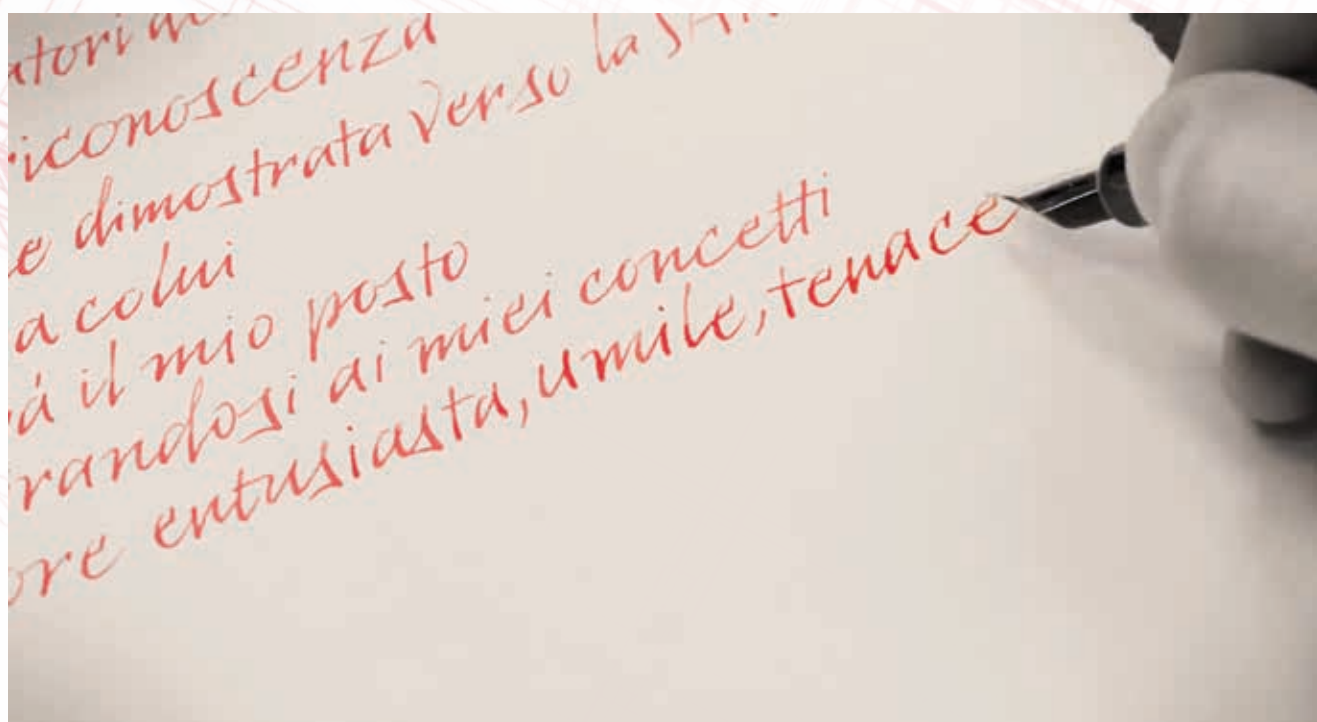 atori
riconoscenza
e dimostrata verso la SA
a colui
à il mio posto
randosi ai miei concetti
ore entusiasta, umile, tenace